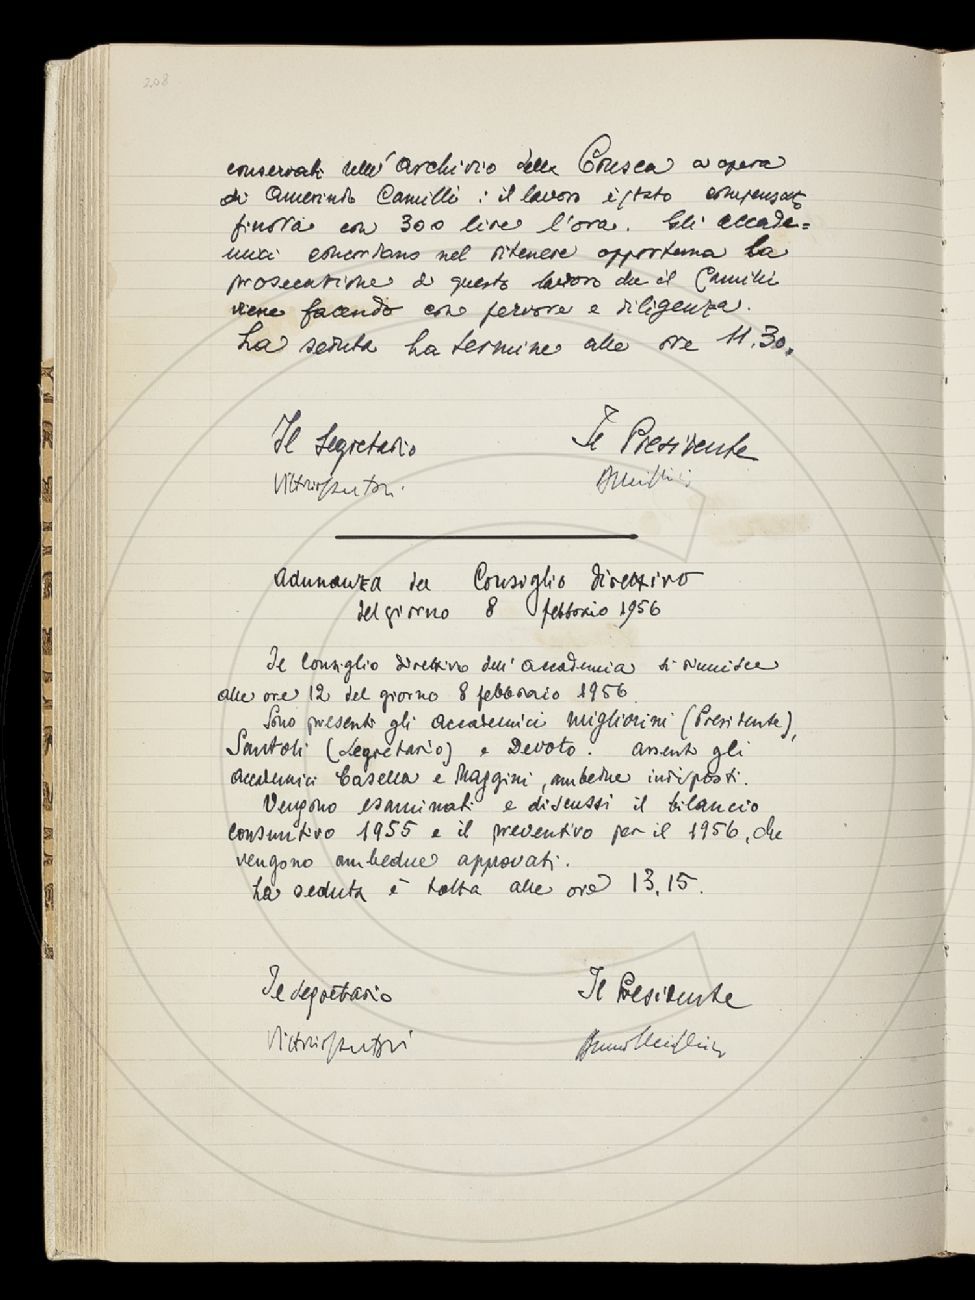 208
conservati nell'Archivio della Crusca a opera
di Amerindo Camilli: il lavoro è stato compensato
finora con 300 lire l'ora. Gli accade=
mici concordano nel ritenere opportuna la
prosecuzione di questo lavoro che il Camilli
viene facendo con fervore e diligenza.
La seduta ha termine alle ore 11.30.
Il Segretario Il Presidente
Vittorio Santoli.
Adunanza del Consiglio direttivo
del giorno 8 febbraio 1956
Il Consiglio direttivo dell'Accademia si riunisce
alle ore 12 del giorno 8 febbraio 1956
Sono presenti gli accademici Migliorini (Presidente),
Santoli (Segretario) e Devoto. assenti gli
accademici Casella e Maggini, ambedue indisposti.
Vengono esaminati e discussi il bilancio
consuntivo 1955 e il preventivo per il 1956, che
vengono ambedue approvati.
La seduta è tolta alle ore 13,15.
Il Segretario Il Presidente
Vittorio Santoli Bruno Migliorini